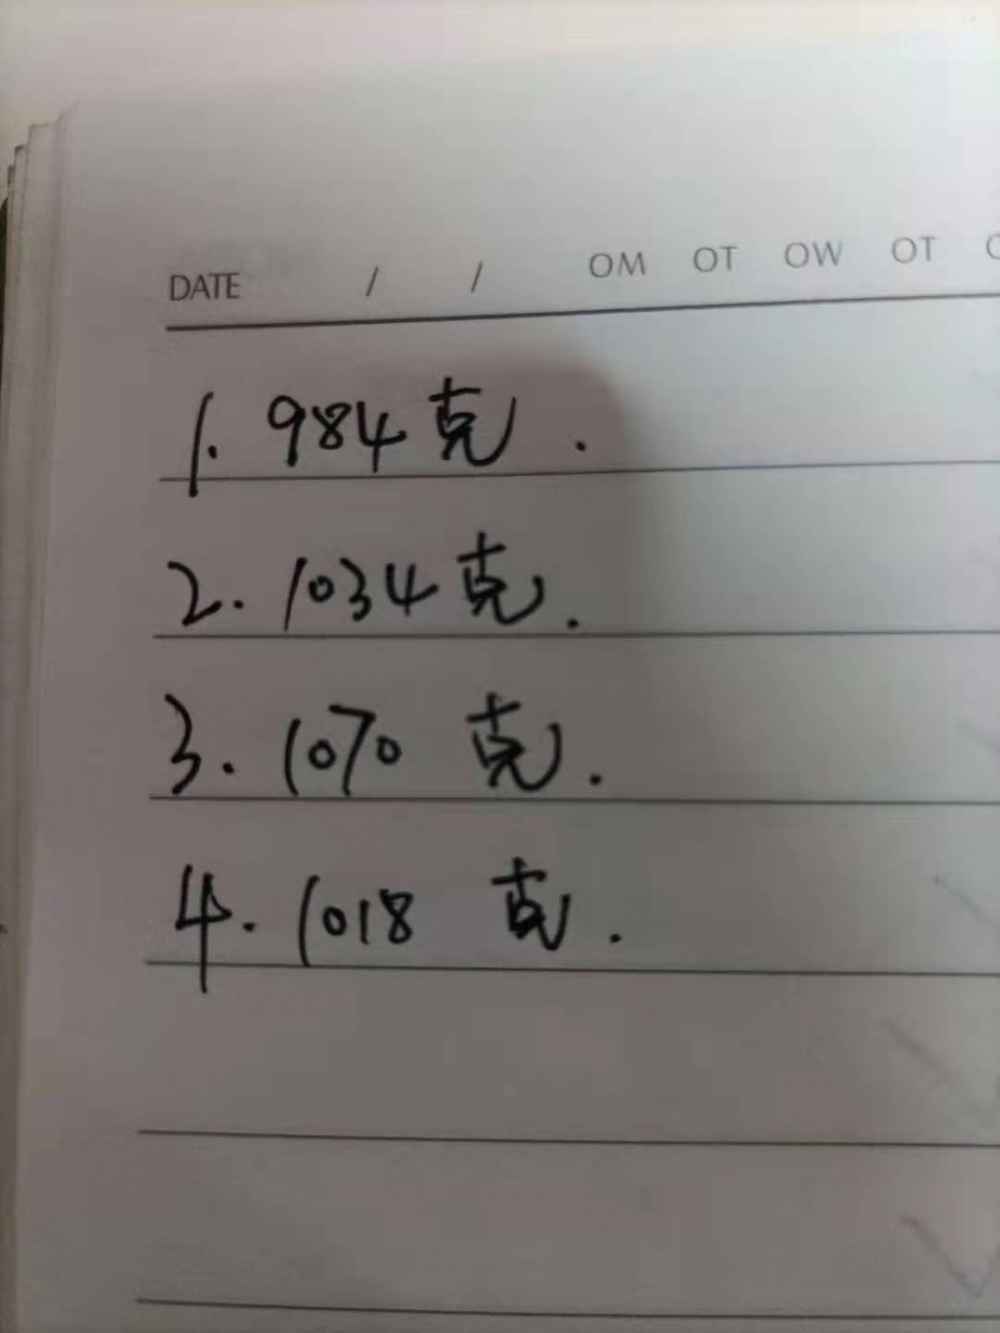 DATE / / OM OT OW OT
1. 984克.
2. 1034克.
3. 1070 克.
4. 1018 克.